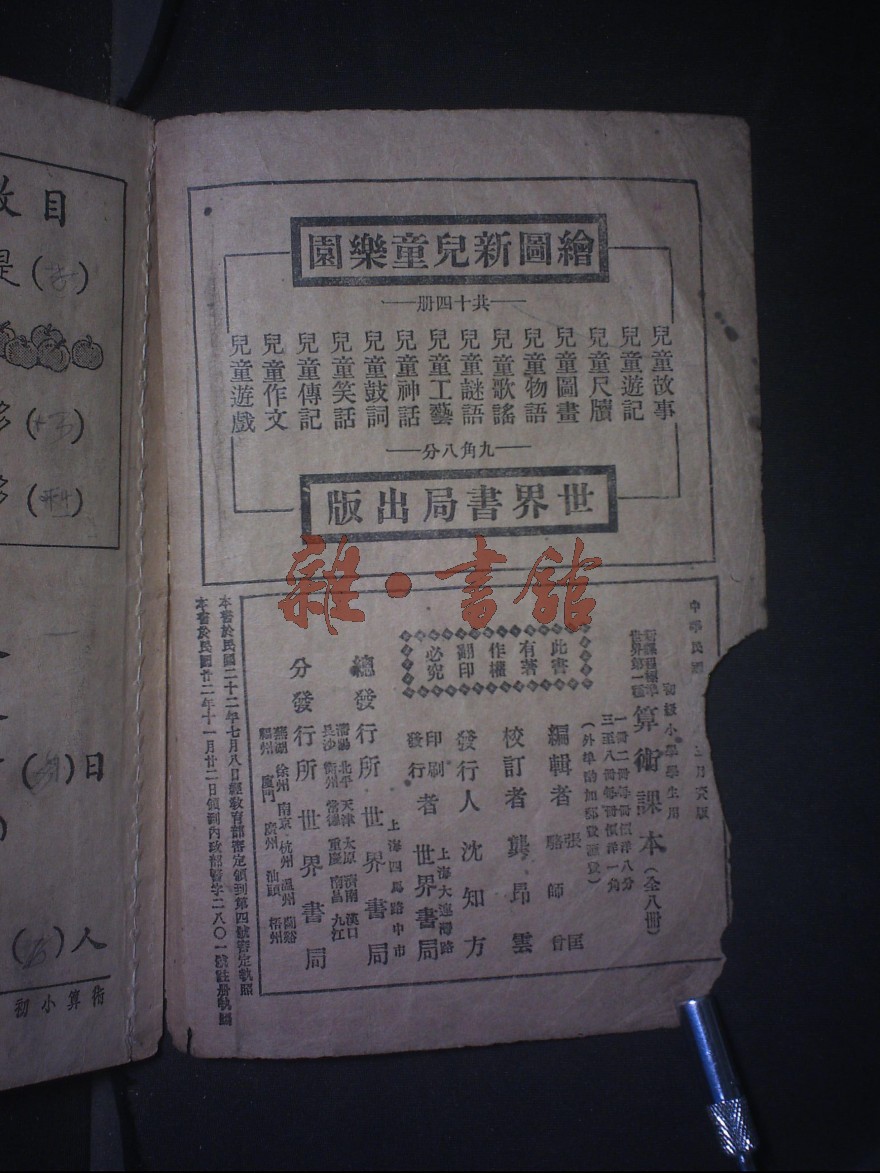 繪圖新兒童樂園
共十四册
兒童故事
兒童遊記
兒童尺牘
兒童圖畫
兒童物語
兒童歌謠
兒童謎語
兒童工藝
兒童神話
兒童鼓詞
兒童笑話
兒童傳記
兒童作文
兒童遊戲
九角八分
世界書局出版
雜·書館
中華民國
月
版
初級小學學生用
新課程標準
世界第一種
算術課本(全八冊)
一册二册每册價洋八分
三至八冊每冊價洋一角
(外埠酌加郵費匯費)
此書
有著
作權
翻印
必究
編輯者 張匡
駱師曾
校訂者 龔昂雲
發行人 沈知方
印刷
發行
者 世界書局
上海大連灣路
總發行所 世界書局
上海四馬路中市
分發行所 世界書局
瀋陽 北平 天津 太原 濟南 漢口
長沙 衡州 常德 重慶 南昌 九江
蕪湖 徐州 南京 杭州 溫州 蘭谿
福州 廈門 廣州 汕頭 梧州
本書於民國二十二年七月八日經教育部審定領到第四號審定執照
本書於民國廿二年十一月廿二日領到內政部警字二八〇一號註册執照
數目
是( )
多( )
多( )
( )日
( )人
初小算術